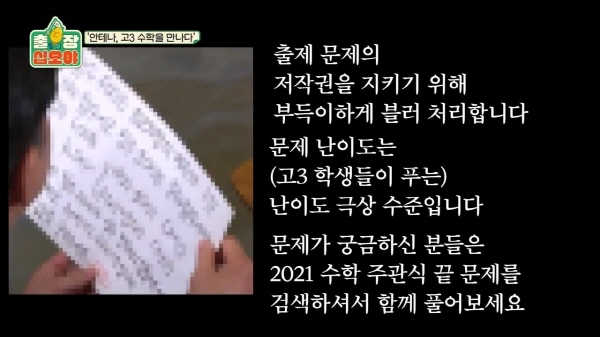 출장
십오야
'안테나, 고3 수학을 만나다'
출제 문제의
저작권을 지키기 위해
부득이하게 블러 처리합니다
문제 난이도는
(고3 학생들이 푸는)
난이도 극상 수준입니다
문제가 궁금하신 분들은
2021 수학 주관식 끝 문제를
검색하셔서 함께 풀어보세요